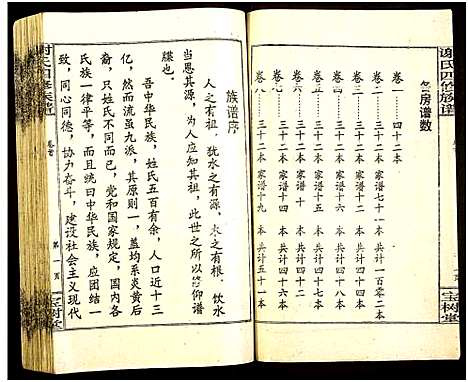 谢氏四修族谱
宝树堂
各房谱数
卷一 四十二本
卷二 三十二本 家谱七十一 共一百零二本
卷三 三十二本 家谱四十 共计
卷四 三十二本 家谱十二 共计四十四本
卷五 三十二本 家谱十六 共计四十八本
卷六 三十二本 家谱
卷七 三十二本 家谱十四 共计四十六本
卷八 三十二本 家谱十九 共计五十一本
族谱序
人之有祖，犹水之有源，木之有根，饮水
当思其源，为人应知其祖，此世之所以修仰谱
牒也。
吾中华民族，姓氏五百有余，人口近十三
亿，然而流虽九派，其原则一，盖均系炎黄后
裔，只姓氏不同而已，党和国家规定，国内各
氏族一律平等，而且统曰中华民族，应团结一
致，同心同德，协力奋斗，建设社会主义现代
谢氏四修族谱
卷首
第一页
宝树堂